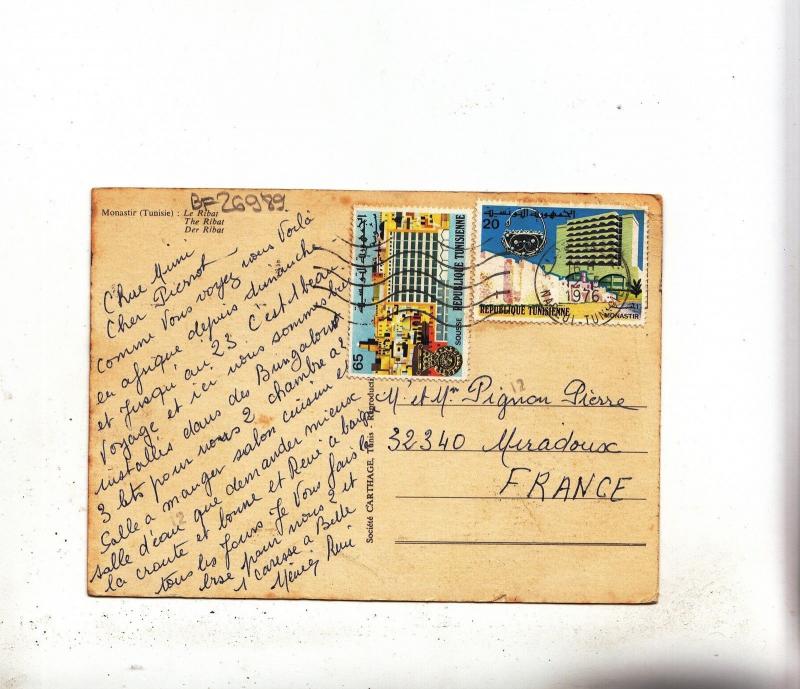 BF26989
Monastir (Tunisie) : Le Ribat
The Ribat
Der Ribat
Chère Mimi
Cher Pierrot
Comme vous voyez nous Voilà
en afrique depuis dimanche
et Jusqu'au 23 C'est 1 beau
Voyage et ici nous sommes bien
installés dans des Bungalows
3 lits pour nous 2 chambre a
Salle a manger salon cuisine
salle d'eau que demander mieux
la croute et bonne et René a
tous les Jours Je Vous fais la
bise pour nous 2 et
1 caresse a Belle
René
Société CARTHAGE, Tunis - Reproducti
65
SOUSSE
REPUBLIQUE TUNISIENNE
الجمهورية التونسية
20
1976
REPUBLIQUE TUNISIENNE
MONASTIR
12
M. et Mme Pignon Pierre
32340 Miradoux
FRANCE
12